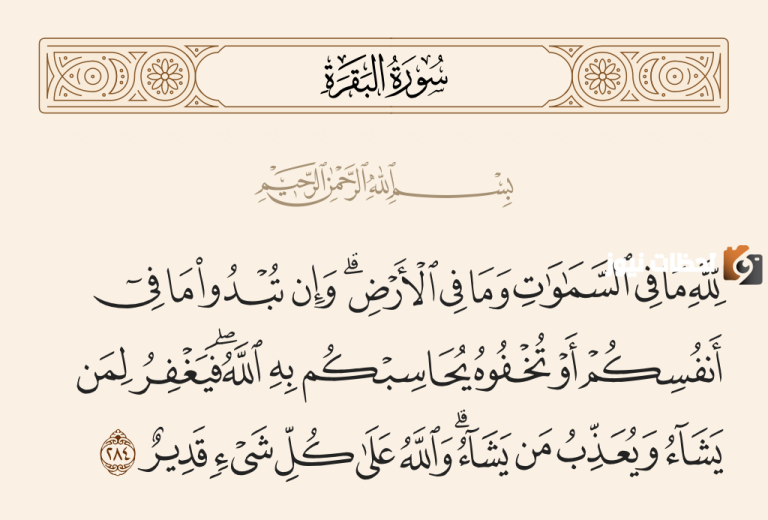 سُورَةُ البَقَرَةِ
بِسْمِ ٱللَّهِ ٱلرَّحْمَٰنِ ٱلرَّحِيمِ
لحظات نيوز
لِلَّهِ مَا فِي ٱلسَّمَٰوَٰتِ وَمَا فِي ٱلْأَرْضِ ۗ وَإِن تُبْدُوا۟ مَا فِىٓ
أَنفُسِكُمْ أَوْ تُخْفُوهُ يُحَاسِبْكُم بِهِ ٱللَّهُ ۖ فَيَغْفِرُ لِمَن
يَشَآءُ وَيُعَذِّبُ مَن يَشَآءُ ۗ وَٱللَّهُ عَلَىٰ كُلِّ شَىْءٍ قَدِيرٌ ٢٨٤